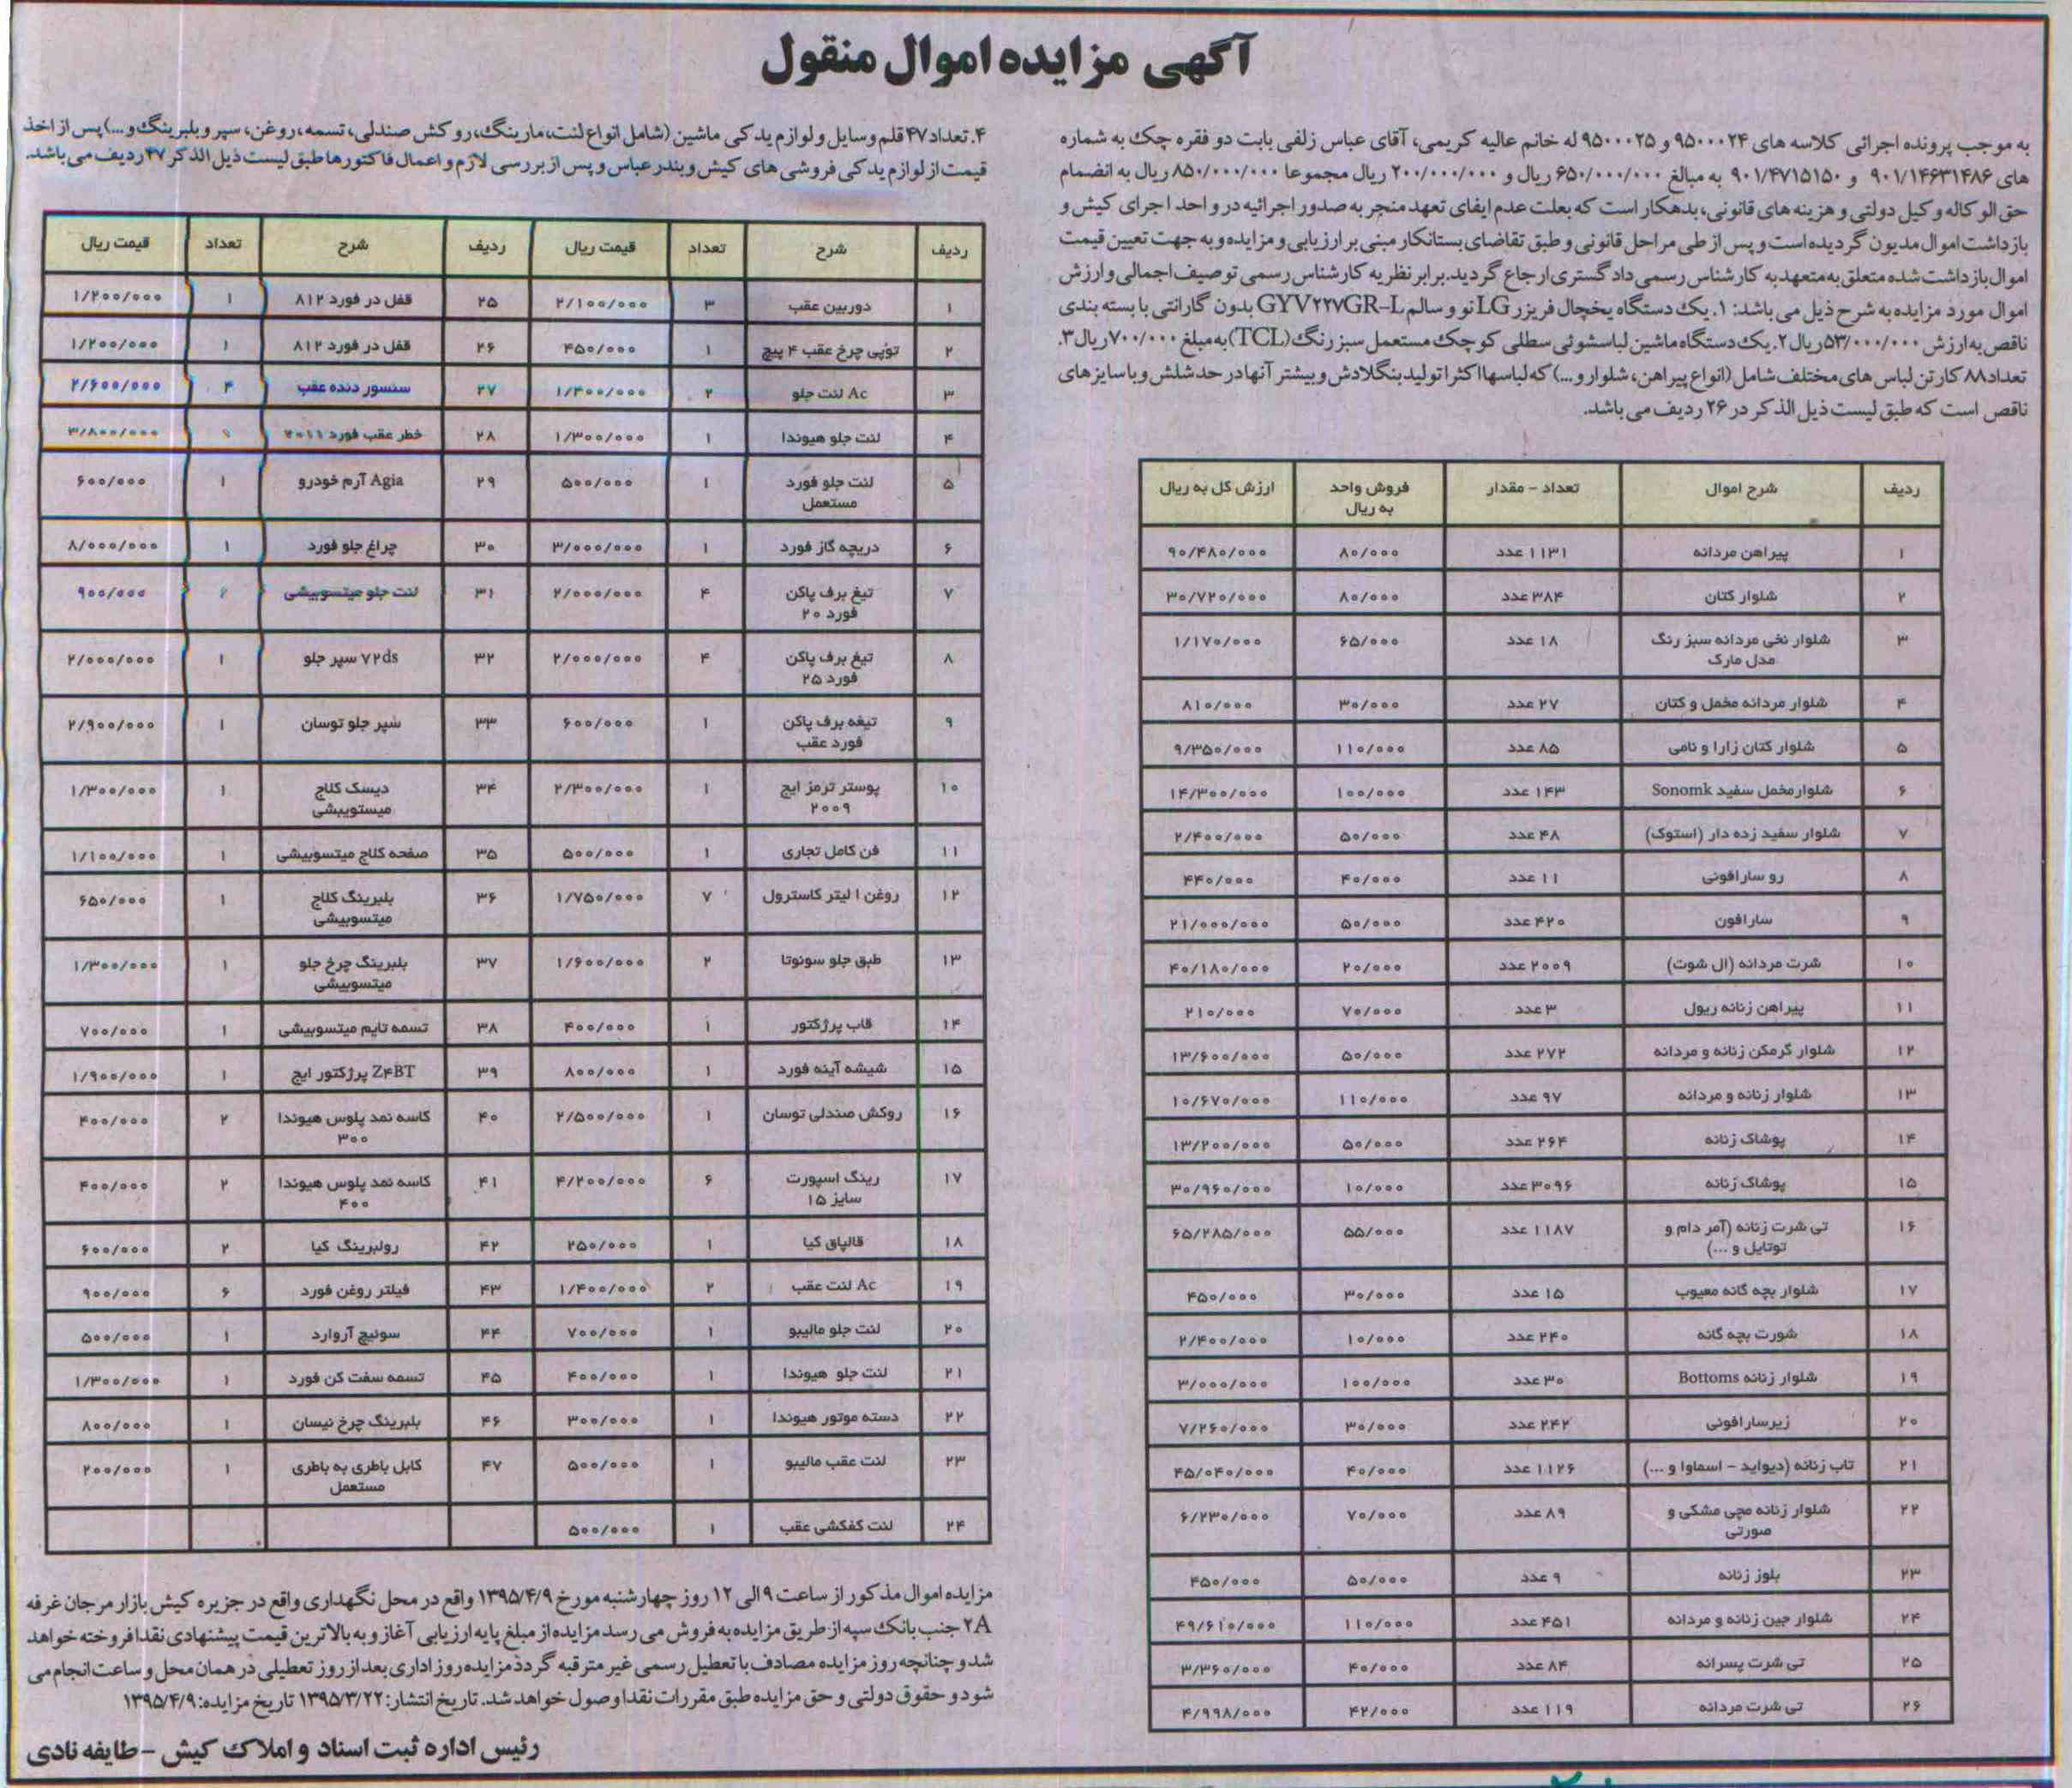 آگهی مزایده اموال منقول
به موجب پرونده اجرائی کلاسه های ۹۵۰۰۰۲۴ و ۹۵۰۰۰۲۵ له خانم عالیه کریمی، آقای عباس زلفی بابت دو فقره چک به شماره
های ۹۰۱/۱۴۶۳۱۴۸۶ و ۹۰۱/۴۷۱۵۱۵۰ به مبالغ ۶۵۰/۰۰۰/۰۰۰ ریال و ۲۰۰/۰۰۰/۰۰۰ ریال مجموعا ۸۵۰/۰۰۰/۰۰۰ ریال به انضمام
حق الوکاله وکیل دولتی و هزینه های قانونی، بدهکار است که بعلت عدم ایفای تعهد منجر به صدور اجرائیه در واحد اجرای کیش و
بازداشت اموال مدیون گردیده است و پس از طی مراحل قانونی و طبق تقاضای بستانکار مبنی بر ارزیابی و مزایده و به جهت تعیین قیمت
اموال بازداشت شده متعلق به متعهد به کارشناس رسمی دادگستری ارجاع گردید. برابر نظریه کارشناس رسمی توصیف اجمالی و ارزش
اموال مورد مزایده به شرح ذیل می باشد: ۱. یک دستگاه یخچال فریزر LG نو و سالم GYV۲۲۷GR-L بدون گارانتی با بسته بندی
ناقص به ارزش ۵۳/۰۰۰/۰۰۰ ریال ۲. یک دستگاه ماشین لباسشوئی سطلی کوچک مستعمل سبز رنگ (TCL) به مبلغ ۷۰۰/۰۰۰ ریال ۳.
تعداد ۸۸ کارتن لباس های مختلف شامل (انواع پیراهن، شلوار و...) که لباسها اکثرا تولید بنگلادش و بیشتر آنها در حد شلش و با سایزهای
ناقص است که طبق لیست ذیل الذکر در ۲۶ ردیف می باشد.
ردیف شرح اموال تعداد - مقدار فروش واحد به ریال ارزش کل به ریال
۱ پیراهن مردانه ۱۱۳۱ عدد ۸۰/۰۰۰ ۹۰/۴۸۰/۰۰۰
۲ شلوار کتان ۳۸۴ عدد ۸۰/۰۰۰ ۳۰/۷۲۰/۰۰۰
۳ شلوار نخی مردانه سبز رنگ مدل مارک ۱۸ عدد ۶۵/۰۰۰ ۱/۱۷۰/۰۰۰
۴ شلوار مردانه مخمل و کتان ۲۷ عدد ۳۰/۰۰۰ ۸۱۰/۰۰۰
۵ شلوار کتان زارا و نامی ۸۵ عدد ۱۱۰/۰۰۰ ۹/۳۵۰/۰۰۰
۶ شلوارمخمل سفید Sonomk ۱۴۳ عدد ۱۰۰/۰۰۰ ۱۴/۳۰۰/۰۰۰
۷ شلوار سفید زده دار (استوک) ۴۸ عدد ۵۰/۰۰۰ ۲/۴۰۰/۰۰۰
۸ رو سارافونی ۱۱ عدد ۴۰/۰۰۰ ۴۴۰/۰۰۰
۹ سارافون ۴۲۰ عدد ۵۰/۰۰۰ ۲۱/۰۰۰/۰۰۰
۱۰ شرت مردانه (ال شوت) ۲۰۰۹ عدد ۲۰/۰۰۰ ۴۰/۱۸۰/۰۰۰
۱۱ پیراهن زنانه ریول ۳ عدد ۷۰/۰۰۰ ۲۱۰/۰۰۰
۱۲ شلوار گرمکن زنانه و مردانه ۲۷۲ عدد ۵۰/۰۰۰ ۱۳/۶۰۰/۰۰۰
۱۳ شلوار زنانه و مردانه ۹۷ عدد ۱۱۰/۰۰۰ ۱۰/۶۷۰/۰۰۰
۱۴ پوشاک زنانه ۲۶۴ عدد ۵۰/۰۰۰ ۱۳/۲۰۰/۰۰۰
۱۵ پوشاک زنانه ۳۰۹۶ عدد ۱۰/۰۰۰ ۳۰/۹۶۰/۰۰۰
۱۶ تی شرت زنانه (آمر دام و توتایل و ...) ۱۱۸۷ عدد ۵۵/۰۰۰ ۶۵/۲۸۵/۰۰۰
۱۷ شلوار بچه گانه معیوب ۱۵ عدد ۳۰/۰۰۰ ۴۵۰/۰۰۰
۱۸ شورت بچه گانه ۲۴۰ عدد ۱۰/۰۰۰ ۲/۴۰۰/۰۰۰
۱۹ شلوار زنانه Bottoms ۳۰ عدد ۱۰۰/۰۰۰ ۳/۰۰۰/۰۰۰
۲۰ زیرسارافونی ۲۴۲ عدد ۳۰/۰۰۰ ۷/۲۶۰/۰۰۰
۲۱ تاب زنانه (دیواید - اسماوا و ...) ۱۱۲۶ عدد ۴۰/۰۰۰ ۴۵/۰۴۰/۰۰۰
۲۲ شلوار زنانه مچی مشکی و صورتی ۸۹ عدد ۷۰/۰۰۰ ۶/۲۳۰/۰۰۰
۲۳ بلوز زنانه ۹ عدد ۵۰/۰۰۰ ۴۵۰/۰۰۰
۲۴ شلوار جین زنانه و مردانه ۴۵۱ عدد ۱۱۰/۰۰۰ ۴۹/۶۱۰/۰۰۰
۲۵ تی شرت پسرانه ۸۴ عدد ۴۰/۰۰۰ ۳/۳۶۰/۰۰۰
۲۶ تی شرت مردانه ۱۱۹ عدد ۴۲/۰۰۰ ۴/۹۹۸/۰۰۰
۴. تعداد ۴۷ قلم وسایل و لوازم یدکی ماشین (شامل انواع لنت، مارینگ، روکش صندلی، تسمه، روغن، سپر و بلبرینگ و...) پس از اخذ
قیمت از لوازم یدکی فروشی های کیش و بندرعباس و پس از بررسی لازم و اعمال فاکتورها طبق لیست ذیل الذکر ۴۷ ردیف می باشد.
ردیف شرح تعداد قیمت ریال ردیف شرح تعداد قیمت ریال
۱ دوربین عقب ۳ ۲/۱۰۰/۰۰۰ ۲۵ قفل در فورد ۸۱۲ ۱ ۱/۲۰۰/۰۰۰
۲ توپی چرخ عقب ۴ پیچ ۱ ۴۵۰/۰۰۰ ۲۶ قفل در فورد ۸۱۲ ۱ ۱/۲۰۰/۰۰۰
۳ Ac لنت جلو ۲ ۱/۴۰۰/۰۰۰ ۲۷ سنسور دنده عقب ۴ ۲/۶۰۰/۰۰۰
۴ لنت جلو هیوندا ۱ ۱/۳۰۰/۰۰۰ ۲۸ خطر عقب فورد ۲۰۱۱ ۳/۸۰۰/۰۰۰
۵ لنت جلو فورد مستعمل ۱ ۵۰۰/۰۰۰ ۲۹ Agia آرم خودرو ۱ ۶۰۰/۰۰۰
۶ دریچه گاز فورد ۱ ۳/۰۰۰/۰۰۰ ۳۰ چراغ جلو فورد ۱ ۸/۰۰۰/۰۰۰
۷ تیغ برف پاکن فورد ۲۰ ۴ ۲/۰۰۰/۰۰۰ ۳۱ لنت جلو میتسوبیشی ۹۰۰/۰۰۰
۸ تیغ برف پاکن فورد ۲۵ ۴ ۲/۰۰۰/۰۰۰ ۳۲ ۷۲ds سپر جلو ۱ ۲/۰۰۰/۰۰۰
۹ تیغه برف پاکن فورد عقب ۱ ۶۰۰/۰۰۰ ۳۳ سپر جلو توسان ۱ ۲/۹۰۰/۰۰۰
۱۰ پوستر ترمز ایج ۲۰۰۹ ۱ ۲/۳۰۰/۰۰۰ ۳۴ دیسک کلاج میستوبیشی ۱ ۱/۳۰۰/۰۰۰
۱۱ فن کامل تجاری ۱ ۵۰۰/۰۰۰ ۳۵ صفحه کلاج میتسوبیشی ۱ ۱/۱۰۰/۰۰۰
۱۲ روغن ۱ لیتر کاسترول ۷ ۱/۷۵۰/۰۰۰ ۳۶ بلبرینگ کلاج میتسوبیشی ۱ ۶۵۰/۰۰۰
۱۳ طبق جلو سوناتا ۲ ۱/۶۰۰/۰۰۰ ۳۷ بلبرینگ چرخ جلو میتسوبیشی ۱ ۱/۳۰۰/۰۰۰
۱۴ قاب پرژکتور ۱ ۴۰۰/۰۰۰ ۳۸ تسمه تایم میتسوبیشی ۱ ۷۰۰/۰۰۰
۱۵ شیشه آینه فورد ۱ ۸۰۰/۰۰۰ ۳۹ Z۴BT پرژکتور ایج ۱ ۱/۹۰۰/۰۰۰
۱۶ روکش صندلی توسان ۱ ۲/۵۰۰/۰۰۰ ۴۰ کاسه نمد پلوس هیوندا ۳۰۰ ۲ ۴۰۰/۰۰۰
۱۷ رینگ اسپورت سایز ۱۵ ۶ ۴/۲۰۰/۰۰۰ ۴۱ کاسه نمد پلوس هیوندا ۴۰۰ ۲ ۴۰۰/۰۰۰
۱۸ قالپاق کیا ۱ ۲۵۰/۰۰۰ ۴۲ رولبرینگ کیا ۲ ۶۰۰/۰۰۰
۱۹ Ac لنت عقب ۲ ۱/۴۰۰/۰۰۰ ۴۳ فیلتر روغن فورد ۶ ۹۰۰/۰۰۰
۲۰ لنت جلو مالیبو ۱ ۷۰۰/۰۰۰ ۴۴ سوئیچ آروارد ۱ ۵۰۰/۰۰۰
۲۱ لنت جلو هیوندا ۱ ۴۰۰/۰۰۰ ۴۵ تسمه سفت کن فورد ۱ ۱/۳۰۰/۰۰۰
۲۲ دسته موتور هیوندا ۱ ۳۰۰/۰۰۰ ۴۶ بلبرینگ چرخ نیسان ۱ ۸۰۰/۰۰۰
۲۳ لنت عقب مالیبو ۱ ۵۰۰/۰۰۰ ۴۷ کابل باطری به باطری مستعمل ۱ ۲۰۰/۰۰۰
۲۴ لنت کفکشی عقب ۱ ۵۰۰/۰۰۰
مزایده اموال مذکور از ساعت ۹ الی ۱۲ روز چهارشنبه مورخ ۱۳۹۵/۴/۹ واقع در محل نگهداری واقع در جزیره کیش بازار مرجان غرفه
۲A جنب بانک سپه از طریق مزایده به فروش می رسد مزایده از مبلغ پایه ارزیابی آغاز و به بالاترین قیمت پیشنهادی نقدا فروخته خواهد
شد و چنانچه روز مزایده مصادف با تعطیل رسمی غیر مترقبه گردد مزایده روز اداری بعد از روز تعطیلی در همان محل و ساعت انجام می
شود و حقوق دولتی و حق مزایده طبق مقررات نقدا وصول خواهد شد. تاریخ انتشار: ۱۳۹۵/۳/۲۲ تاریخ مزایده: ۱۳۹۵/۴/۹
رئیس اداره ثبت اسناد و املاک کیش - طایفه نادی